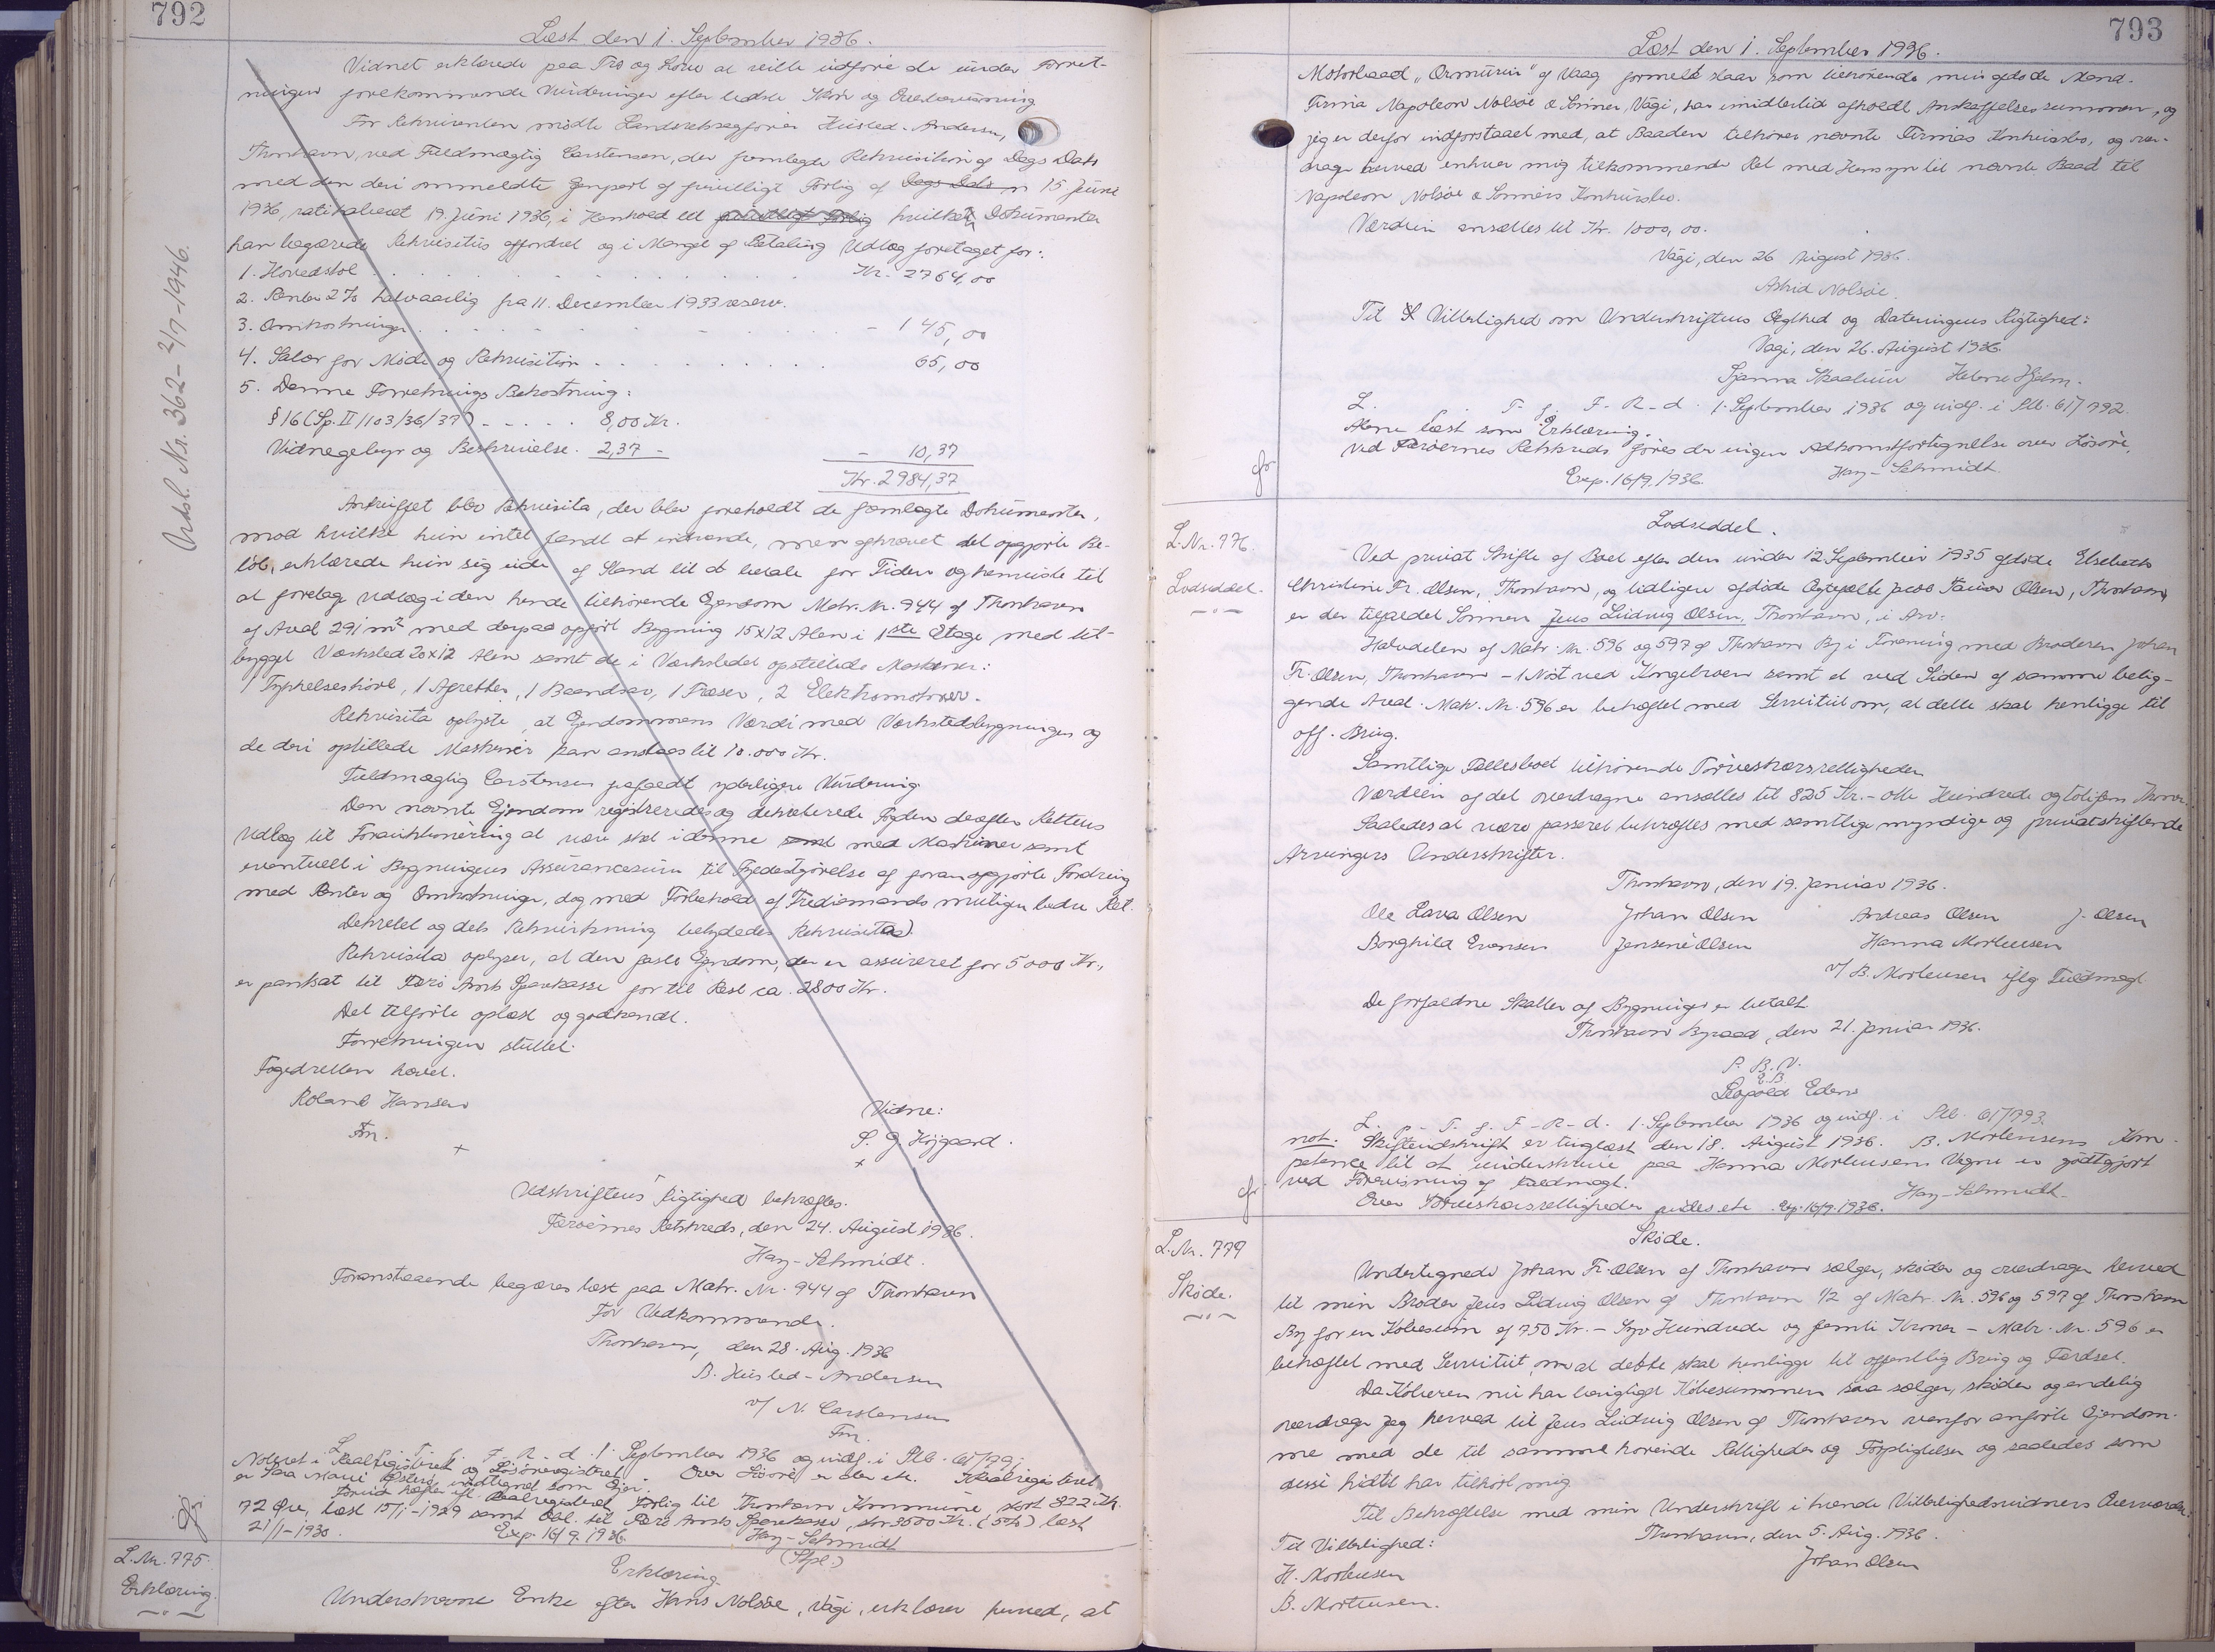 792
Læst den 1. September 1936.
Vidnet erklærede paa Tro og Love at ville udføre de under Forret-
ningen forekommende Vurderinger efter bedste Skøn og Overbevisning
For Rekvirenten mødte Landsretssagfører Husted-Andersen,
Thorshavn, ved Fuldmægtig Carstensen, der fremlagde Rekvisition af Dags Dato
med den deri ommeldte Genpart af frivilligt Forlig af Dags Dato 15 Juni
1936, ratihaberet 19. Juni 1936, i Henhold til frivilligt Forlig hvilke Dokumenter
han begærede Rekvisitus affordret og i Mangel af Betaling Udlæg foretaget for:
1. Hovedstol . . . . . Kr. 2764,00
2. Renter 2 % halvaarlig fra 11. December 1933 reserv.
3. Omkostninger . . . . . - 145,00
4. Salær for Møde og Rekvisition . . . . . 65,00
5. Denne Forretnings Bekostning:
§16 (Sp. II 1103/36/37) - - - - 8,00 Kr.
Vidnegebyr og Beskrivelse. 2,37 - - 10,37
Kr. 2984,37
Antruffet blev Rekvisita, der blev foreholdt de fremlagte Dokumenter,
mod hvilke hun intet fandt at erindre, men afkrævet det opgjorte Be-
løb, erklærede hun sig ude af Stand til at betale for Tiden og henviste til
at foretage Udlæg i den hende tilhørende Ejendom Matr. Nr. 944 af Thorshavn
af Areal 291 m² med derpaa opført Bygning 15x12 Alen i 1ste Etage med til-
bygget Værksted 20x12 Alen samt de i Værkstedet opstillede Maskiner:
1 Tykkelseshøvl, 1 Afretter, 1 Baandsav, 1 Fræser, 2 Elektromotorer.
Rekvisita oplyste, at Ejendommens Værdi med Værkstedsbygningen og
de deri opstillede Maskiner kan anslaas til 10.000 Kr.
Fuldmægtig Carstensen frafaldt yderligere Vurdering
Den nævnte Ejendom registreredes og dekreterede Fogden derefter Rettens
Udlæg til Forauktionering at være sket i denne samt med Maskiner samt
eventuelt i Bygningens Assurancesum til Fyldestgørelse af foran opgjorte Fordring
med Renter og Omkostninger, dog med Forbehold af Trediemands mulige bedre Ret.
Dekretet og dets Retsvirkning betydedes Rekvisita.
Rekvisita oplyser, at den faste Ejendom, der er assureret for 5000 Kr.,
er pantsat til Færø Amts Sparekasse for til Rest ca. 2800 Kr.
Det tilførte oplæst og godkendt.
Forretningen sluttet.
Fogedretten hævet.
Roland Hansen
Fm.
Vidne:
P. J. Højgaard.
Udskriftens Rigtighed bekræftes.
Færøernes Retskreds, den 24. August 1936.
Hay-Schmidt.
Foranstaaende begæres læst paa Matr. Nr. 944 af Thorshavn
For Vedkommende.
Thorshavn, den 28. Aug. 1936
B. Husted-Andersen
v/ N. Carstensen
Fm.
L. T. f. F-R-d. 1. September 1936 og indf. i Ptb. 61/791
Noteret i Realregistret og Løsøreregistret. Over Løsøre er der etc. I Realregistret
er Sara Marie Østerø indtegnet som Ejer.
Forud hæfter ifl. Realregistret Forlig til Thorshavn Kommune, stort 822 Kr.
72 Øre, læst 15/1-1929 samt Obl. til Færø Amts Sparekasse, str 3500 Kr. (5%) læst
21/1-1930. Exp. 16/9. 1936. Hay-Schmidt
(Stpl.)
Ovtsl. Nr. 362 - 2/7-1946.
L. Nr. 775.
Erklæring.
Erklæring.
Underskrevne Enke efter Hans Nolsøe, Vági, erklærer herved, at
793
Læst den 1. September 1936.
Motorbaad "Ormurin" af Vaag formelt staar som tilhørende min afdøde Mand.
Firma Napoleon Nolsøe & Sønner, Vági, har imidlertid afholdt Anskaffelsessummen, og
jeg er derfor indforstaaet med, at Baaden tilhører nævnte Firmas Konkursbo, og over-
drager herved enhver mig tilkommende Ret med Hensyn til nævnte Baad til
Napoleon Nolsøe & Sønners Konkursbo.
Værdien ansættes til Kr. 1000,00.
Vági, den 26 August 1936.
Astrid Nolsøe.
Til Vitterlighed om Underskriftens Ægthed og Dateringens Rigtighed:
Vági, den 26. August 1936.
Sjanna Skaalum Helene Hjelm.
L. T. f. F-R-d. 1. September 1936 og indf. i Ptb. 61/792.
Alene læst som Erklæring.
Ved Færøernes Retskreds føres der ingen Adkomstfortegnelse over Løsøre.
Exp. 16/9. 1936. Hay-Schmidt.
L. Nr. 776.
Lodseddel.
Lodseddel.
Ved privat Skifte af Boet efter den under 12 September 1935 afdøde Elsebeth
Christine Fr. Olsen, Thorshavn, og tidligere afdøde Ægtefælle Olsen, Thorshavn,
er der tilfaldet Sønnen Jens Ludvig Olsen, Thorshavn, i Arv:
Halvdelen af Matr. Nr. 596 og 597 af Thorshavn By i Forening med Broderen Johan
Fr. Olsen, Thorshavn - 1 Nøst ved Kongebroen samt et ved Siden af samme belig-
gende Areal. Matr. Nr. 596 er behæftet med Servitut om, at dette skal henligge til
off. Brug.
Samtlige Fællesboet tilhørende Tørveskærsrettigheder
Værdien af det overdragne ansættes til 825 Kr. - otte Hundrede og tolvfem Kroner.
Saaledes at være passeret bekræftes med samtlige myndige og privatskiftende
Arvingers Underskrifter.
Thorshavn, den 19. Januar 1936.
Ole Lava Olsen Johan Olsen Andreas Olsen J. Olsen
Borghild Evensen Jensine Olsen Hanna Mortensen
v/ B. Mortensen iflg Fuldmagt
De forfaldne Skatter af Bygninger er betalt
Thorshavn Byraad, den 21. Januar 1936.
P. B. V.
E.B.
Leopold Eden
L. p. T. f. F-R-d. 1. September 1936 og indf. i Ptb. 61/793.
not. Skifteudskrift er tinglæst den 18. August 1936. B. Mortensens Kom-
petence til at underskrive paa Hanna Mortensens Vegne er godtgjort
ved Forevisning af Fuldmagt.
Over Tørveskærsrettigheder findes etc. Exp. 16/9. 1936. Hay-Schmidt.
L. Nr. 777
Skøde.
Skøde.
Undertegnede Johan Fr. Olsen af Thorshavn sælger, skøder og overdrager herved
til min Broder Jens Ludvig Olsen af Thorshavn 1/2 af Matr. Nr. 596 og 597 af Thorshavn
By for en Købesum af 750 Kr. - Syv Hundrede og femti Kroner - Matr. Nr. 596 er
behæftet med Servitut om at dette skal henligge til offentlig Brug og Færdsel.
Da Køberen nu har berigtiget Købesummen saa sælger, skøder og endelig
overdrager jeg herved til Jens Ludvig Olsen af Thorshavn ovenfor anførte Ejendom-
me med de til samme hørende Rettigheder og Forpligtelser og saaledes som
disse hidtil har tilhørt mig
Til Bekræftelse med min Underskrift i tvende Vitterlighedsvidners Overværelse.
Thorshavn, den 5. Aug. 1936.
Til Vitterlighed: Johan Olsen
H. Mortensen
B. Mortensen.